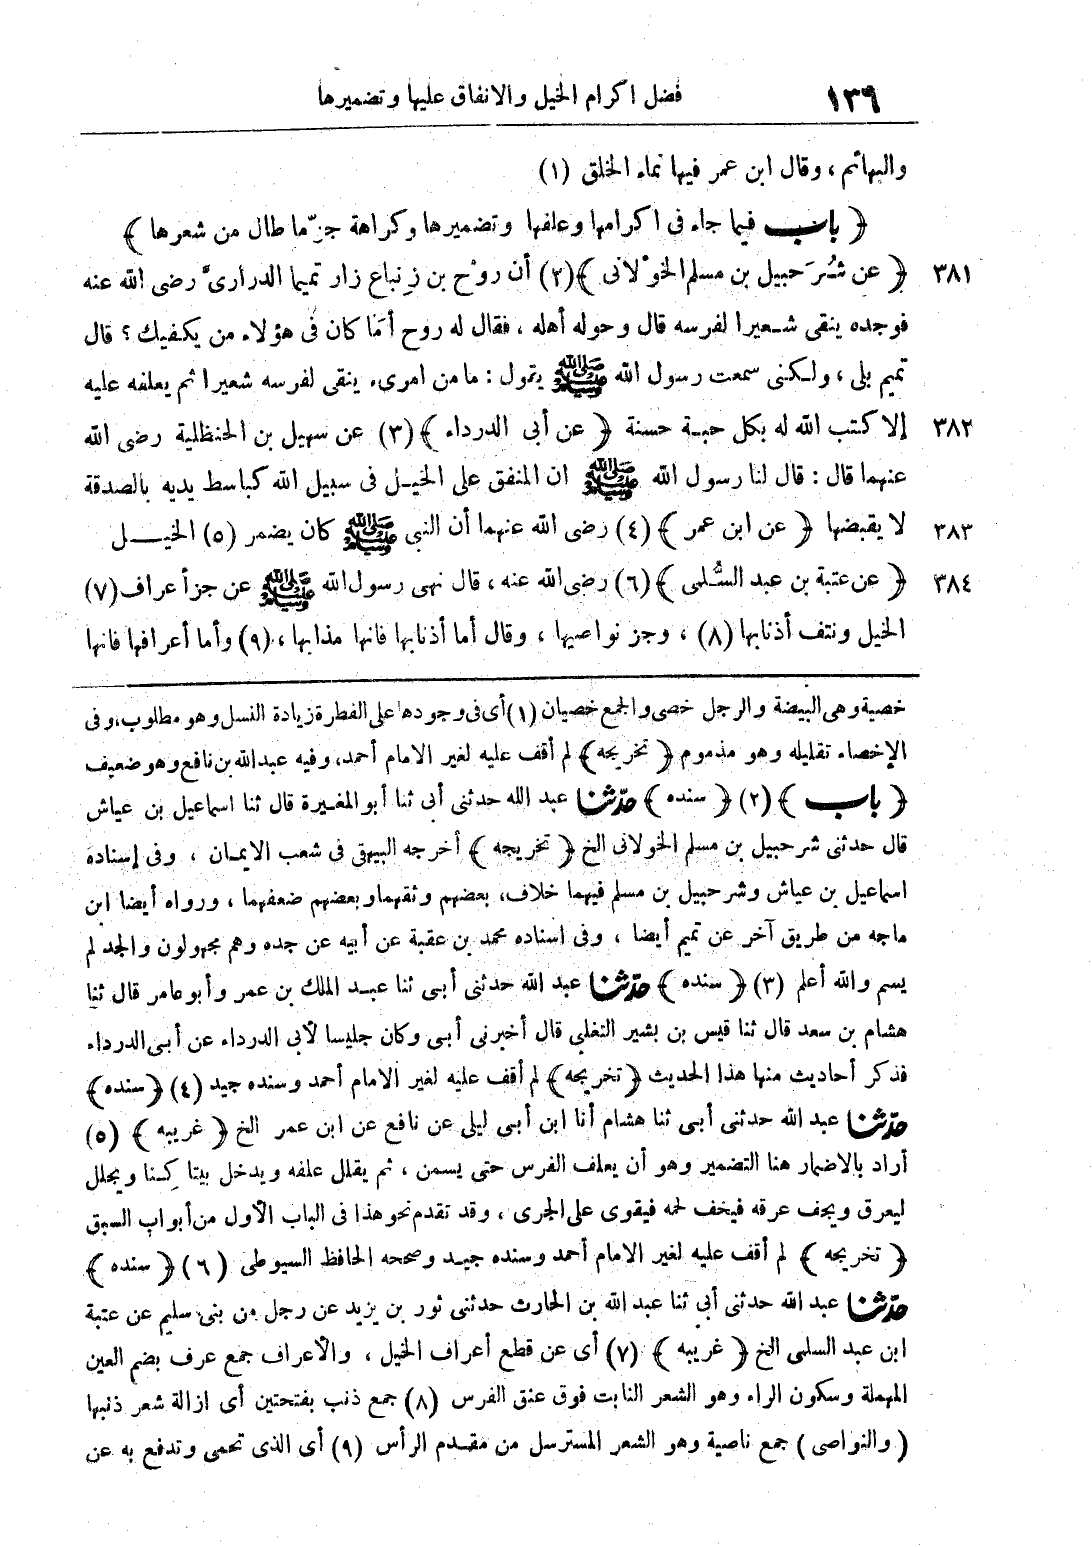 ١٣٦ فضل اكرام الخيل والانفاق عليها وتضميرها
والبهائم ، وقال ابن عمر فيها نماء الخلق (١)
﴿ باب فيما جاء فى اكرامها وعلفها وتضميرها وكراهة جزّ ما طال من شعرها ﴾
٣٨١ ﴿ عن شُرَحبيل بن مسلم الخوْلانى ﴾(٢) أن روْح بن زِنباع زار تميما الدارىَّ رضى الله عنه
فوجده ينقى شعيرا لفرسه قال وحوله أهله ، فقال له روح أمَا كان فى هؤلاء من يكفيك ؟ قال
تميم بلى ، ولكنى سمعت رسول الله ﷺ يقول : ما من امرىء ينقى لفرسه شعيرا ثم يعلفه عليه
٣٨٢ إلا كتب الله له بكل حبة حسنة ﴿ عن أبى الدرداء ﴾(٣) عن سهيل بن الحنظلية رضى الله
عنهما قال : قال لنا رسول الله ﷺ ان المنفق على الخيل فى سبيل الله كباسط يديه بالصدقة
٣٨٣ لا يقبضها ﴿ عن ابن عمر ﴾(٤) رضى الله عنهما أن النبى ﷺ كان يضمر (٥) الخيل
٣٨٤ ﴿ عن عتبة بن عبد السُّلمى ﴾(٦) رضى الله عنه ، قال نهى رسول الله ﷺ عن جز أعراف(٧)
الخيل ونتف أذنابها (٨) ، وجز نواصيها ، وقال أما أذنابها فانها مذابها ، (٩) وأما أعرافها فانها
خصية وهى البيضة والرجل خصى والجمع خصيان (١) أى فى وجودها على الفطرة زيادة النسل وهو مطلوب، وفى
الإخصاء تقليله وهو مذموم ﴿ تخريجه ﴾ لم أقف عليه لغير الامام أحمد، وفيه عبد الله بن نافع وهو ضعيف
﴿ باب ﴾ (٢) ﴿ سنده ﴾ حدّثنا عبد الله حدثنى أبى ثنا أبو المغيرة قال ثنا اسماعيل بن عياش
قال حدثنى شرحبيل بن مسلم الخولانى الخ ﴿ تخريجه ﴾ أخرجه البيهقى فى شعب الايمان ، وفى إسناده
اسماعيل بن عياش وشرحبيل بن مسلم فيهما خلاف، بعضهم وثقهما وبعضهم ضعفهما ، ورواه أيضا ابن
ماجه من طريق آخر عن تميم أيضا ، وفى اسناده محمد بن عقبة عن أبيه عن جده وهم مجهولون والجد لم
يسم والله أعلم (٣) ﴿ سنده ﴾ حدّثنا عبد الله حدثنى أبى ثنا عبد الملك بن عمر وأبو عامر قال ثنا
هشام بن سعد قال ثنا قيس بن بشير التغلبى قال أخبرنى أبى وكان جليسا لأبى الدرداء عن أبى الدرداء
فذكر أحاديث منها هذا الحديث ﴿ تخريجه ﴾ لم أقف عليه لغير الامام أحمد وسنده جيد (٤) ﴿ سنده ﴾
حدّثنا عبد الله حدثنى أبى ثنا هشام أنا ابن أبى ليلى عن نافع عن ابن عمر الخ ﴿ غريبه ﴾ (٥)
أراد بالاضمار هنا التضمير وهو أن يعلف الفرس حتى يسمن ، ثم يقلل علفه ويدخل بيتا كِنا ويجلل
ليعرق ويجف عرقه فيخف لحمه فيقوى على الجرى ، وقد تقدم نحو هذا فى الباب الأول من أبواب السبق
﴿ تخريجه ﴾ لم أقف عليه لغير الامام أحمد وسنده جيد وصححه الحافظ السيوطى (٦) ﴿ سنده ﴾
حدّثنا عبد الله حدثنى أبى ثنا عبد الله بن الحارث حدثنى ثور بن يزيد عن رجل من بنى سليم عن عتبة
ابن عبد السلمى الخ ﴿ غريبه ﴾ (٧) أى عن قطع أعراف الخيل ، والأعراف جمع عرف بضم العين
المهملة وسكون الراء وهو الشعر النابت فوق عنق الفرس (٨) جمع ذنب بفتحتين أى ازالة شعر ذنبها
( والنواصى ) جمع ناصية وهو الشعر المسترسل من مقدم الرأس (٩) أى الذى تحمى وتدفع به عن